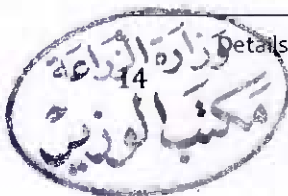 Details
وزارة الزراعة
14
مكتب الوزير